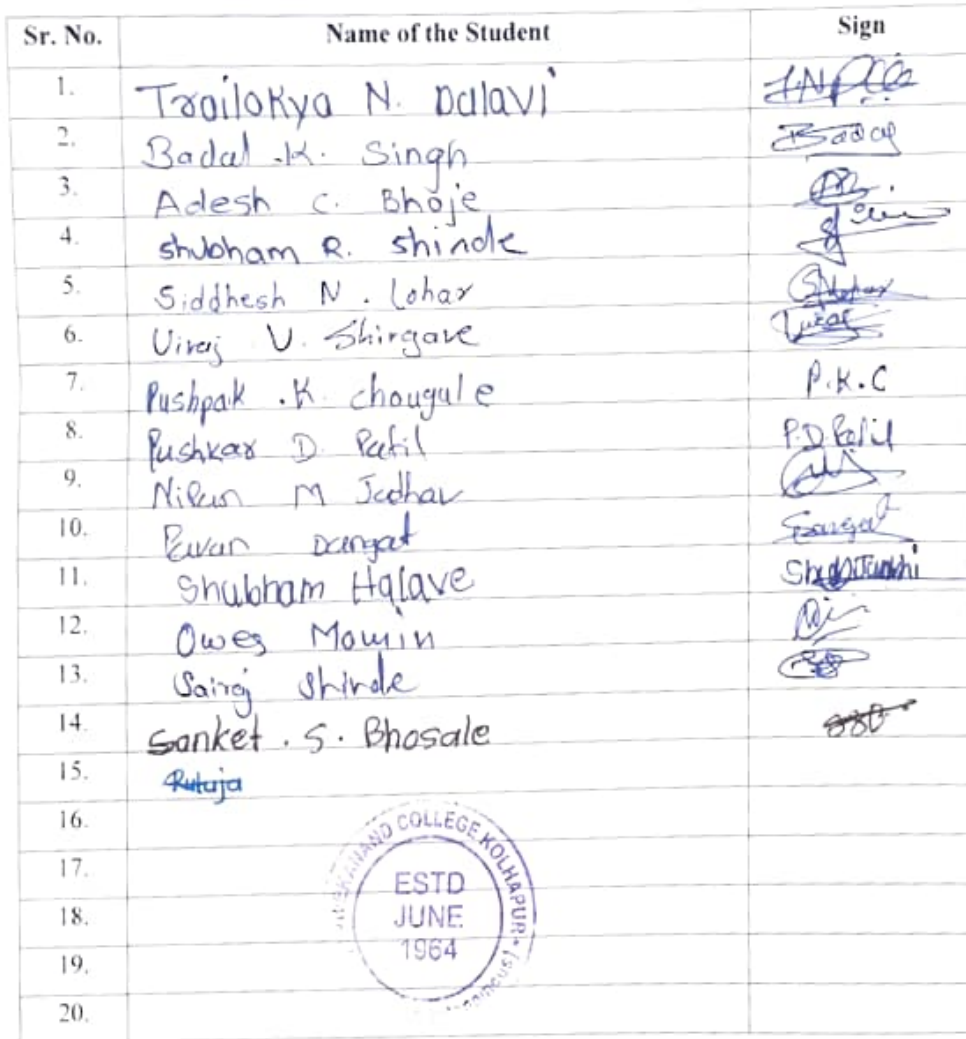 Sr. No. Name of the Student Sign
1. Trailokya N. Dalavi
2. Badal .K. Singh Badal
3. Adesh C. Bhoje
4. Shubham R. Shinde
5. Siddhesh N. Lohar
6. Viraj V. Shirgave Viraj
7. Pushpak .K. chougule P.K.C
8. Pushkar D. Patil P.D.Patil
9. M Jadhav
10. Pavan Dangat Dangat
11. Shubham Halave
12. Owes Momin
13. Sairaj Shinde
14. Sanket . S. Bhosale
15. Rutuja
16.
17.
18.
19.
20.
COLLEGE KOLHAPUR
ESTD
JUNE
1964